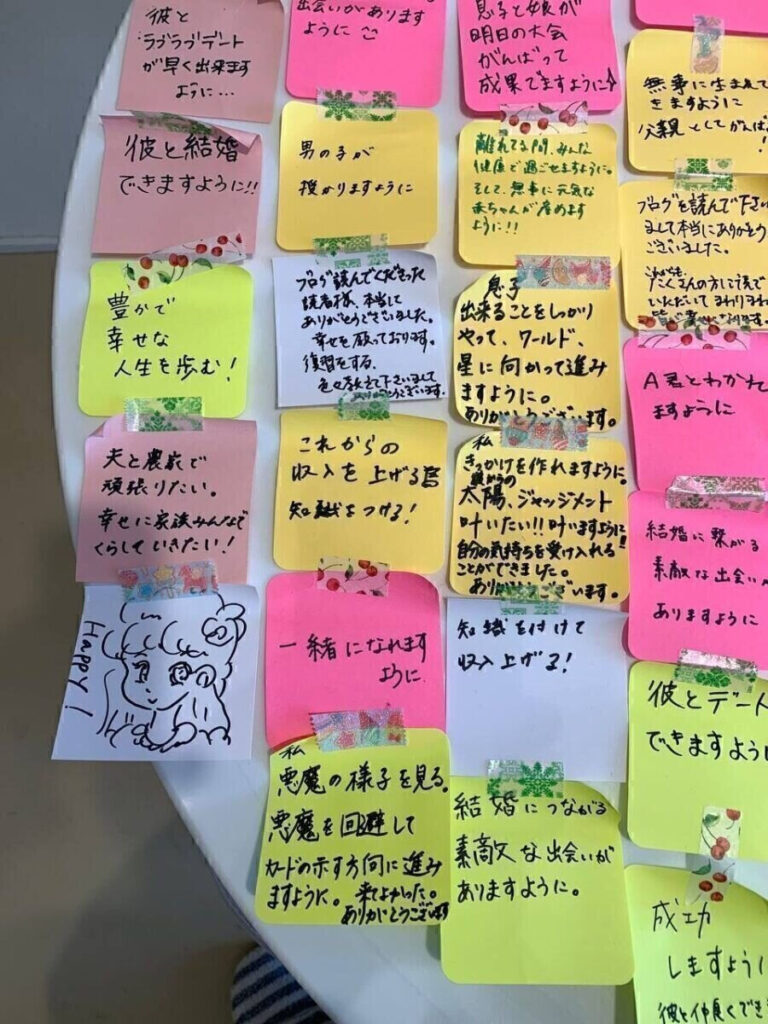 彼と
ラブラブデート
が早く出来ます
ように…
彼と結婚
できますように!!
豊かで
幸せな
人生を歩む!
夫と農家で
頑張りたい。
幸せに家族みんなで
くらしていきたい!
Happy!
出会いがあります
ように
男の子が
授かりますように
ブログ読んでくださった
読者様、本当に
ありがとうございました。
幸せを願っております。
復習をする、
色々教えて下さいまして
ありがとうございます。
これからの
収入を上げる
知識をつける!
一緒になれます
ように
私
悪魔の様子を見る。
悪魔を回避して
カードの示す方向に進み
ますように。来てよかった。
ありがとうございます
息子と娘が
明日の大会
がんばって
成果でますように
離れてる間、みんな
健康で過ごせますように。
そして、無事に元気な
赤ちゃんが産めます
ように!!
息子
出来ることをしっかり
やって、ワールド、
星に向かって進み
ますように。
ありがとうございます。
私
きっかけを作れますように。
太陽、ジャッジメント
叶いたい!!叶いますように
自分の気持ちを受け入れる
ことができました。
ありがとうございます。
知識を付けて
収入上げる!
結婚につながる
素敵な出会いが
ありますように。
無事に生まれて
きますように
父親としてがんば
ブログを読んで下さい
まして本当にありがとう
ございました。
これからも
たくさんの方に読んで
いただいて
A君とわかれ
ますように
結婚に繋がる
素敵な出会い
ありますように
彼とデート
できますように
成功
しますように
彼と仲良くでき